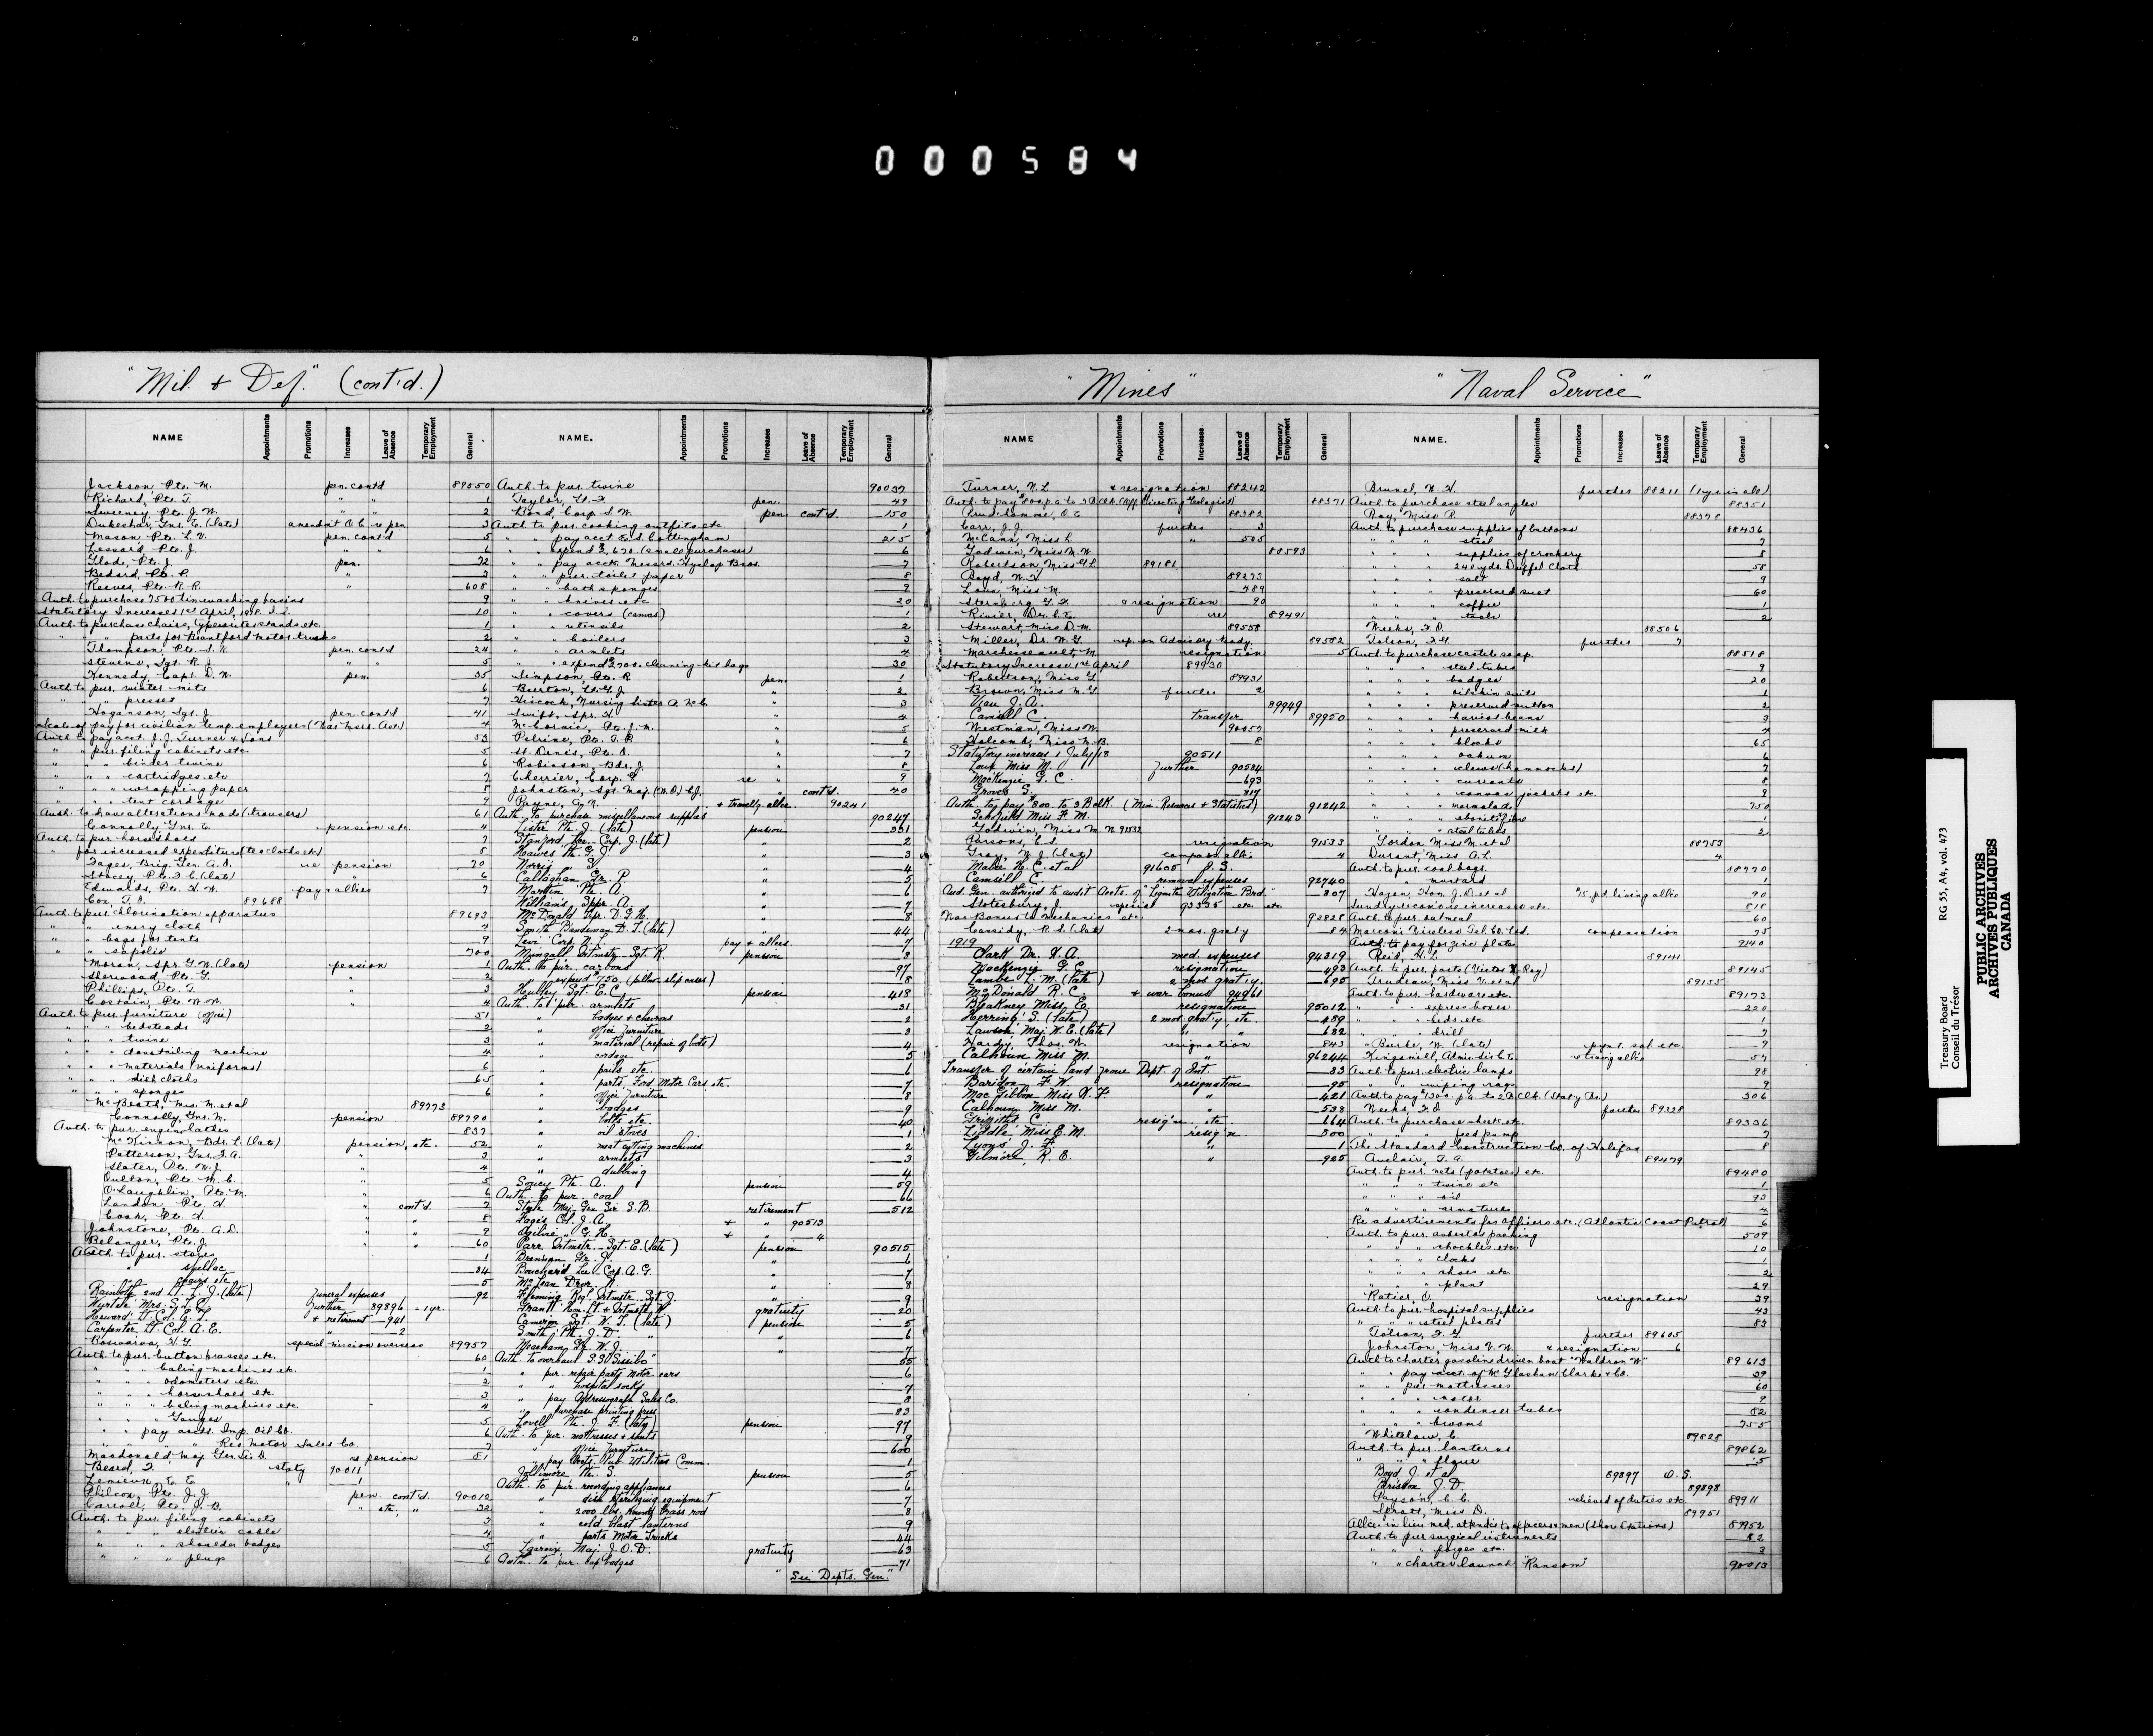 000584
"Mil. & Def." (cont'd.)
NAME Appointments Promotions Increases Leave of Absence Temporary Employment General
Jackson, Pte. M. pen. cont'd 89550
Richard, Pte. T. " " 1
Sweeney, Pte. J. W. " " 2
Dukeshar, Gnr. E. (late) amendm't O.C. re pen 3
Mason, Pte. L. V. pen. cont'd 5
Lessard, Pte. J. " " 6
Glode, Pte. J. pen. 72
Bedard, Pte. P. " 3
Reeves, Pte. R. R. " 608
Auth. to purchase 7500 tin washing basins 9
Statutory Increases 1st April, 1918. 10
Auth. to purchase chairs, typewriter stands etc. 1
" " " parts for Brantford motor trucks 2
Thompson, Pte. S. R. pen. cont'd 24
Stevens, Sgt. R. J. " " 5
Kennedy, Capt. D. W. pen. 35
Auth. to pur. winter mits 6
" " " presses 7
Hoganson, Sgt. J. pen. cont'd 41
Scale of pay for civilian temp. employees (War Msrs. Act) 4
Auth. to pay acct. J. J. Turner & Sons 53
" " pur. filing cabinets etc. 5
" " " binder twine 6
" " " cartridges etc 7
" " " wrapping paper 8
" " " tent cordage 9
Auth. to have alterations made (trousers) 61
Connolly Gnr. C. pension etc. 4
Auth. to pur. horseshoes 7
" for increased expenditure (tea cloths etc) 8
Fages, Brig. Gen. A. O. re pension 70
Stacey, Pte. F. C. (late) " 6
Edwards, Pte. H. W. pay & allces 7
Cox, T. D. 89688
Auth. to pur. chlorination apparatus 89693
" " " emery cloth 4
" " " bags for tents 9
" " " sapolio 700
Moran, Spr. G. W. (late) pension 1
Sherwood, Pte. G. " 2
Phillips, Pte. T. " 3
Costain, Pte. W. W. " 4
Auth. to pur. furniture (office) 51
" " " bedsteads 2
" " " twine 3
" " " dovetailing machine 4
" " " materials (uniforms) 6
" " " dish cloths 65
" " " sponges 6
McBeath, Mrs. M. et al 89773
Connolly, Gnr. N. pension 89790
Auth. to pur. engine lathes 837
McKinnon, Bdr. L. (late) pension, etc. 52
Patterson, Gnr. F. A. " 3
Slater, Pte. W. J. " 4
Oulton, Pte. M. C. " 5
O'Laughlin, Pte. M. " 6
Landon, Pte. H. " cont'd. 7
Cook, Pte. H. " 8
Johnstone, Pte. A. D. " " 9
Belanger, Pte. J. " " 60
Auth. to pur. stores 1
" shellac 84
" chairs etc 5
Rainboth 2nd Lt. L. J. (late) funeral expenses 92
Further 89896 - 1 yr.
Heward Lt. Col. E. L. + retirement 941
Carpenter Lt. Col. A. E. " 2
Bosworva, H. G. special mission overseas 89957
Auth. to pur. button brasses etc. 60
" " " baling machines etc. 1
" " " odometers etc 2
" " " horseshoes etc. 3
" " " baling machines etc. 4
" " " Gauges 5
" " pay accts. Imp. Oil Co. 6
" " " " Res. Motor Sales Co. 7
Macdonald Maj. Gen. Sir D. re pension 81
Beard, F. staty 90011
Lemieux, E. E. " 1
Philcox, Pte. J. J. pen. cont'd. 90012
Carroll, Pte. J. B. " etc. " 32
Auth. to pur. filing cabinets 3
" " " electric cable 4
" " " shoulder badges 5
" " " plugs 6
NAME. Appointments Promotions Increases Leave of Absence Temporary Employment General
Auth. to pur. twine 90037
Taylor, Lt. F. pen. 49
Bond, Corp. S. W. pen. cont'd. 150
Auth. to pur. cooking outfits etc. 1
" " pay acct. E. S. Cottingham 215
" " spend $2,670 (small purchases) 6
" " pay acct. Messrs. Hyslop Bros. 7
" " pur. toilet paper 8
" " bath sponges 9
" " knives etc 20
" " covers (canvas) 1
" " utensils 2
" " boilers 3
" " armlets 4
" " expend $2700. cleaning kit bags 30
Simpson, Pte. R. pen. 1
Burton, Lt. G. J. " 2
Hiscock, Nursing Sister A. McC. " 3
Swift, Spr. H. " 4
McCormic, Pte. J. M. " 5
Pelrine, Pte. T. P. " 6
St. Denis, Pte. O. " 7
Robinson, Bdr. J. " 8
Cherrier, Corp. G. re " 9
Johnston, Sgt. Maj. (W.O.) C. J. " cont'd. 40
Payne, A. N. + travellg. allce. 90241
Auth. to purchase miscellaneous supplies 90247
Lister Pte. J. (late) pension 331
Stanford, Lce. Corp. J. (late) " 2
Hawes Pte. G. J. " 3
Norris " G. " 4
Callaghan Gr. P. " 5
Martin Pte. A. " 6
Williams Sppr. A. " 7
McDonald Spr. D. G. H. " 8
Smith Bandsman D. T. (late) " 44
Levi Corp. N. L. pay & allces 7
Mungall Qrtmstr. Sgt. R. pension 8
Auth. to pur. carbons 97
" " expend $750 (pillow slip cases) 8
Hurlley Sgt. E. C. pension 418
Auth. to pur. armlets 31
" badges & chevrons 2
" office furniture 3
" material (repair of boots) 4
" cordage 5
" pails etc. 6
" parts, Ford Motor Cars etc. 7
" office furniture 8
" badges 9
" bolts etc. 40
" oil stoves 1
" meat cutting machines 2
" armlets 3
" dubbing 4
Soucy Pte. A. pension 59
Auth. to pur. coal 66
Steele Maj. Gen. Sir S. B. retirement 512
Fages Col. J. A. + " 90513
Ogilvie " G. H. + " 4
Parr Qrtmstr. Sgt. E. (late) pension 90515
Brennan Gr. J. " 6
Bouchard Lce. Corp. A. G. " 7
McLean Drvr. N. " 8
Fleming Regl. Qrtmstr. Sgt. J. " 9
Grant Hon. Lt. & Qrtmstr. W. gratuity 20
Cameron Sgt. W. T. (late) pension 5
Smith Pte. J. D. " " 6
Meacham, Gr. W. J. " 7
Auth. to overhaul S.S. "Sissibo" 55
" pur. repair parts Motor cars 6
" " hospital socks 7
" pay Addressograph Sales Co. 8
" purchase printing press 83
Lovell Pte. J. F. (late) pension 97
Auth. to pur. mattresses & sheets 9
" office furniture 600
" pay accts. Pub. Utilities Comm. 1
Gallimore Pte. S. pension 5
Auth. to pur. recording appliances 6
" dish sterilizing equipment 7
" 2000 lbs. round brass rod 8
" cold blast lanterns 9
" parts Motor Trucks 44
Lacroix Maj. J. O. D. gratuity 63
Auth. to pur. cap badges 71
"See Depts. Gen."
"Mines"
NAME Appointments Promotions Increases Leave of Absence Temporary Employment General
Turner, N. L. & resignation 88242
Auth. to pay $800 p.a. to 3 B clk. (Off. Directing Geologist) 88371
Prud'homme, O. E. 88382
Carr, J. J. further 3
McCann, Miss L. " 505
Godwin, Miss M. W. 80593
Robertson, Miss G. L. 89181
Boyd, W. H. 89273
Love, Miss M. 489
Sternberg G. F. & resignation 90
Rinier, Dr. C. E. re 89491
Stewart, Miss D. M. 89558
Miller, Dr. W. G. rep. on Advisory body. 89582
Marchessault, M. resignation 5
Statutory Increase 1st April 89930
Robertson, Miss G. 89931
Brown, Miss M. G. further 2
Viau J. A. 89949
Camsell C. transfer 89950
Westman, Miss W. 90057
Holcomb, Miss M. B. 8
Statutory increases 1 July/18 90511
Love Miss M. Further 90584
MacKenzie G. C. 693
Groves S. 817
Auth. to pay $800. to 3 B clk. (Min. Resources & Statistics) 91242
Schofield Miss F. M. 91243
Godwin, Miss M. N. 91532
Parsons, C. S. resignation 91533
Gray, W. J. (late) compass. allce. 4
Mabee H. C. et al 91605 O. S.
Camsell C. removal expenses 92740
Aud. Gen. authorized to audit Accts. of "Lignite Utilization Brd." 807
Stotesbury, J. special 93335 etc. etc.
War Bonus to mechanics etc. 93828
Cassidy, R. S. (late) 2 mos. graty 84
1919
Clark Dr. F. A. med. expenses 94319
MacKenzie G. C. resignation 493
Lambe L. M. (late) 2 mos. graty. 695
McDonald R. C. + war bonus 94961
Blakney Miss, E. resignation 95012
Herring S. (late) 2 mos. graty, etc. 489
Lawson Maj. W. E. (late) " " 682
Hardy, Thos. W. resignation 843
Calhoun Miss M. " 96244
Transfer of certain land from Dept. of Int. 83
Baridon F. W. resignation 95
MacGibbon Miss K. F. " 421
Calhoun Miss M. " 538
Griffith C. resig'n etc. 664
Liddle, Miss E. M. resig'n 800
Lyons J. F. " 1
Gilmore, R. E. " 925
"Naval Service"
NAME. Appointments Promotions Increases Leave of Absence Temporary Employment General
Brunel, N. H. further 88211 (1 yr. in all)
Auth. to purchase steel angles 88351
Roy, Miss R. 88378
Auth. to purchase supplies of buttons 88436
" " " steel 7
" " " supplies of crockery 8
" " " 240 yds. Duffel Cloth 58
" " " salt 9
" " " preserved suet 60
" " " coffee 1
" " " tools 2
Weeks, F. D. 88506
Tolson, F. G. further 7
Auth. to purchase castile soap. 88518
" " " steel tubes 9
" " " badges 20
" " " oilskin suits 1
" " " preserved mutton 2
" " " haricot beans 3
" " " preserved milk 4
" " " blocks 65
" " " oakum 6
" " " clews (hammocks) 7
" " " currants 8
" " " canvas jackets etc. 9
" " " marmalade 750
" " " ebonite fibre 1
" " " steel tubes 2
Gordon Miss M. et al 88753
Durant, Miss A. L. 4
Auth. to pur. coal bags. 88770
" " " mustard
Hazen, Hon. J. D. et al $15. p.d. living allce 90
Sundry economic increases etc. 818
Auth. to pur. oatmeal 60
Marconi Wireless Tel. Co. Ltd. compensation 75
Auth. to pay for zinc plates 9140
Reid, H. L. 89141
Auth. to pur. parts (Victor X Ray) 89145
Trudeau, Miss V. et al 89155
Auth. to pur. hardware etc. 89173
" " " express boxes 220
" " " beds etc. 1
" " " drill 7
Burke, W. (late) paymt. sal. etc. 9
Kingsmill, Adm. Sir C. E. & travlg allce 57
Auth. to pur. electric lamps 98
" " " wiping rags 9
Auth. to pay $1300. p.a. to 2 B Clk. (Staty Inc.) 306
Weeks, F. D. further 89328
Auth. to purchase sheets etc. 89336
" " " feed pump 7
The Standard Construction Co. of Halifax 8
Auclair, T. A. 89479
Auth. to pur. nets (potatoes) etc. 89480
" " " twine etc 1
" " " oil 93
" " " armatures 4
Re advertisements for Officers etc. (Atlantic Coast Patrol) 6
Auth. to pur. asbestos packing 509
" " " shackles etc. 10
" " " clocks 1
" " " shoes etc. 2
" " " plant 29
Ratier, O. resignation 39
Auth. to pur. hospital supplies 43
" " " steel plates 83
Tolson, F. G. further 89605
Johnston, Miss V. W. & resignation 6
Auth. to charter gasoline driven boat "Waldron W" 89613
" " pay acct. of McGlashan Clarke & Co. 39
" " pur. mattresses 60
" " " motor 9
" " " condenser tubes 82
" " " brooms 755
Whitelaw, C. 89828
Auth. to pur. lanterns 89862
" " " flour 5
Boyd J. et al 89897 O. S.
Brisson J. D. 89898
Payson, C. C. relieved of duties etc. 89911
Spratt, Miss D. 89951
Allce. in lieu med. attendce to officers & men (Shore Stations) 89952
Auth. to pur. surgical instruments 82
" " " forges etc. 3
" " charter launch "Ransom" 90013
Treasury Board
Conseil du Trésor
RG 55, A4, vol. 473
PUBLIC ARCHIVES
ARCHIVES PUBLIQUES
CANADA